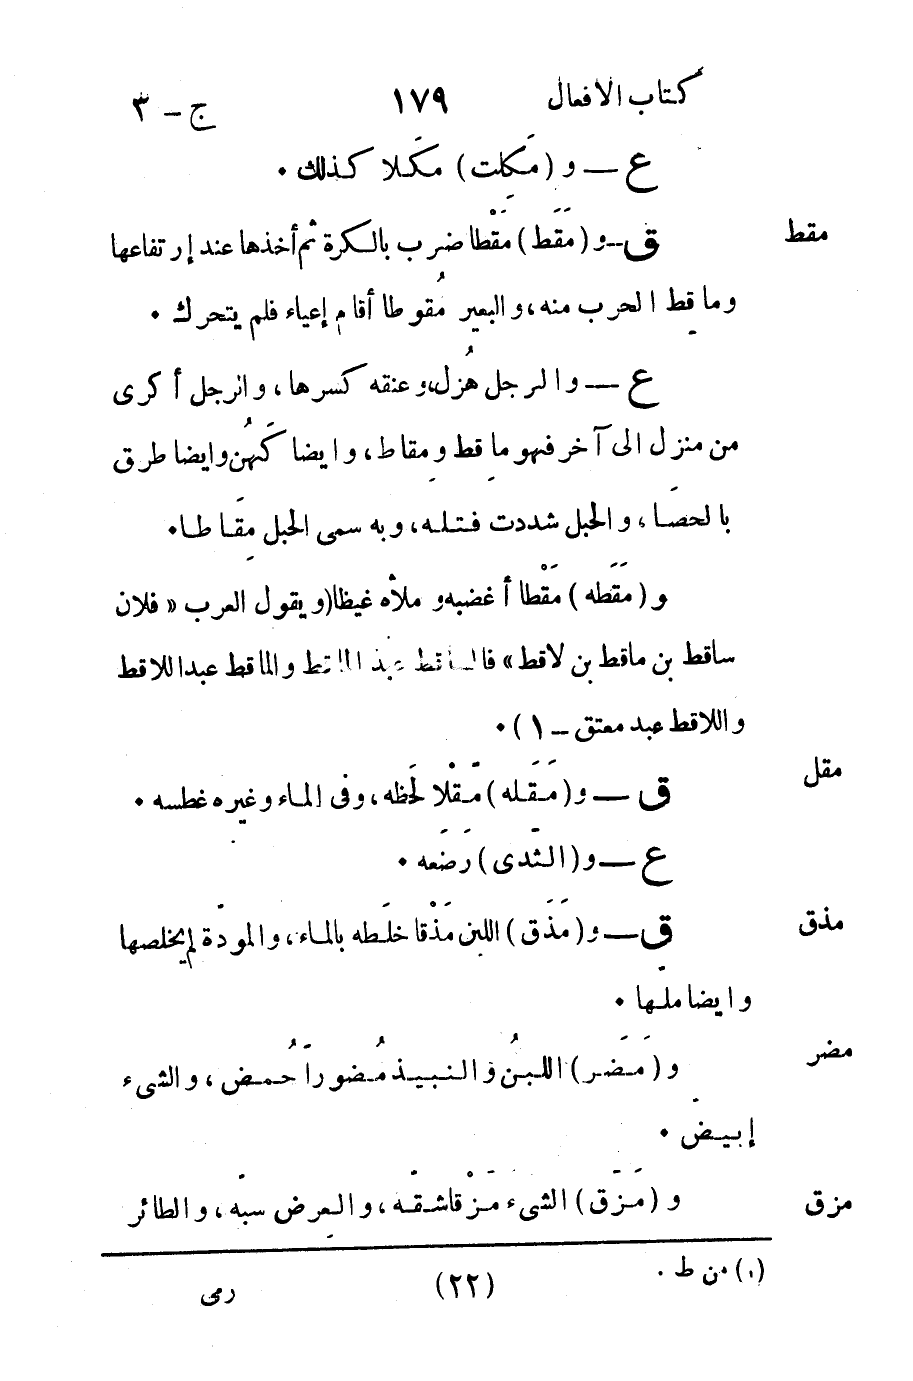 كتاب الافعال ١٧٩ ج - ٣
ع – و (مَكِلت) مَكَلا كذلك ٠
مقط
ق – و (مَقَط) مَقْطا ضرب بالكرة ثم أخذها عند إرتفاعها
وماقِط الحرب منه، والبعير مُقوطا أقام إعياء فلم يتحرك ٠
ع – والرجل هُزل، وعنقه كسرها، والرجل أكرى
من منزل الى آخر فهو ماقِط ومقاط، وايضا كَهُن وايضا طرق
بالحصَا، والحبل شددت فتله، وبه سمى الحبل مِقَاطا٠
و (مَقَطه) مَقْطا أغضبه وملأه غيظا (ويقول العرب « فلان
ساقط بن ماقط بن لاقط» فالساقط عبد الماقط والماقط عبد اللاقط
واللاقط عبد معتق – ١) ٠
مقل
ق – و (مَقَله) مَقْلا لَحَظه، وفى الماء وغيره غطسه ٠
ع – و (الثَّدى) رَضَعه ٠
مذق
ق – و (مَذَق) اللبن مَذْقا خلَطه بالماء، والمودّة لم يخلصها
وايضا ملّها ٠
مضر
و (مَضَر) اللبنُ والنبيذ مُضوراً حَمُض، والشىء
إبيضّ ٠
مزق
و (مَزَق) الشىء مَزْقا شقّه، والعِرض سبّه، والطائر
(١) من ط ٠
(٢٢) رمى